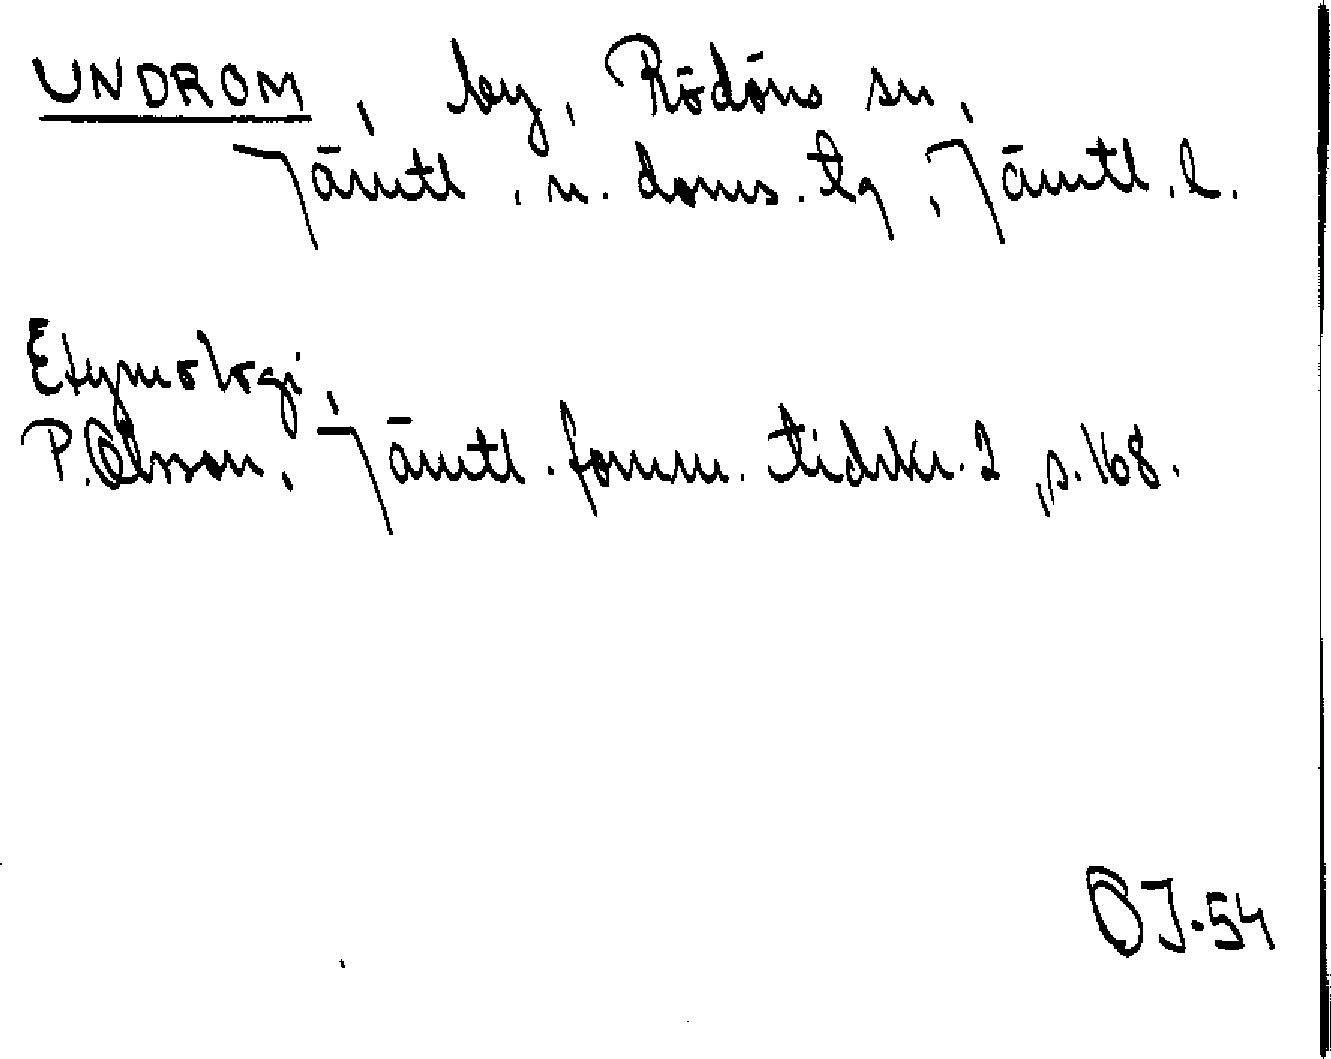 UNDROM, by, Rödöns sn,
Jämtl. n. doms. tg, Jämtl. l.
Etymologi,
P. Olsson, Jämtl. fornm. tidskr. 2, s. 168.
OJ-54